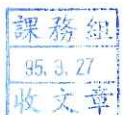 課務組
95.3.27
收文章